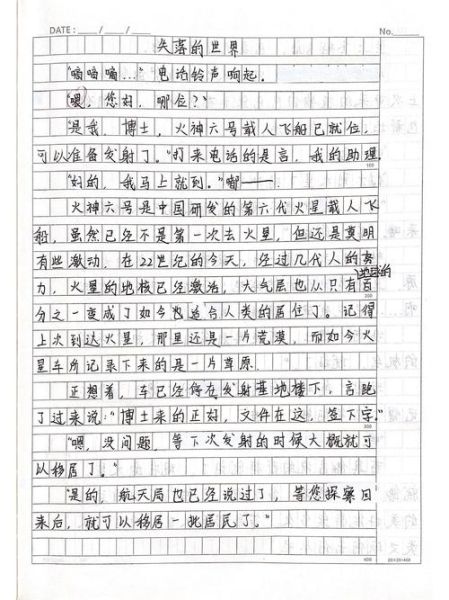 DATE: / /
No.
失落的世界
"嘀嘀嘀嘀…"电话铃声响起。
"喂,您好,哪位?"
"是我,博士,火神六号载人飞船已就位,
可以准备发射了。"打来电话的是言,我的助理。
100
"好的,我马上就到。"嘟——
火神六号是中国研发的第六代火星载人飞
船,虽然已经不是第一次去火星,但还是莫明
有些激动,在22世纪的今天,经过几代人的努
地球的
力,火星的地核已经激活,大气层也从只有百
200
分之一变成了如今也适合人类的居住了。记得
上次到达火星,那里还是一片荒漠,而如今火
星车所记录下来的是一片草原.
正想着,车已经停在发射基地楼下,言跑
了过来说:"博士来的正好,文件在这,签下字."
300
"嗯,没问题,等下次发射的时候大概就可
以移居了。"
"是的,航天局也已经说过了,等您探察回
来后,就可以移居一批居民了。"
400
20×20=400